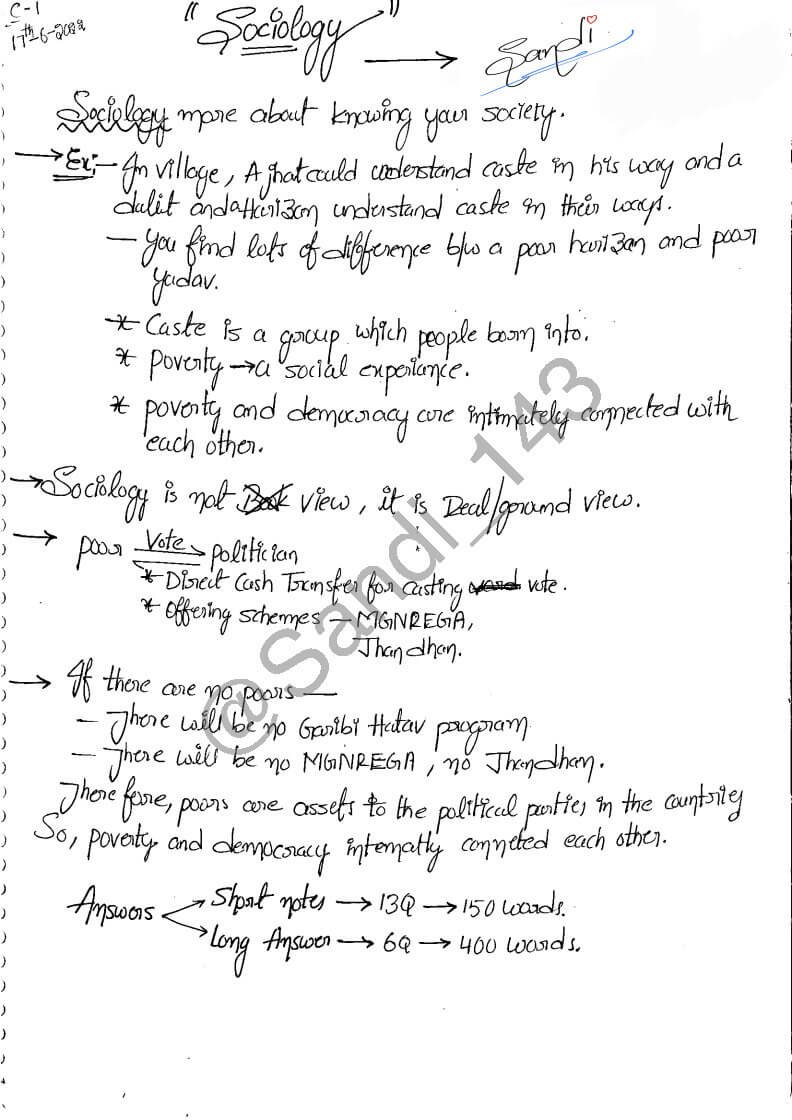 C-1
17th-6-2022
"Sociology" → Sandi
Sociology more about knowing your society.
→ Ex:- In village, A jhat could understand caste in his way and a
dalit and a Harizan understand caste in their ways.
- You find lots of difference b/w a poor harizan and poor
yadav.
* Caste is a group which people born into.
* Poverty → a social experiance.
* Poverty and democracy are intimately connected with
each other.
→ Sociology is not view, it is Real/ground view.
→ poor Vote → politician
* Direct Cash Transfer for casting vote.
* Offering schemes - MGNREGA,
Jhandhan.
→ If there are no poors —
- There will be no Garibi Hatav program
- There will be no MGNREGA, no Jhandhan.
There fore, poors are assets to the political parties in the countriey
So, poverty and democracy internatly conneted each other.
Answers
Short notes → 13Q → 150 words.
Long Answer → 6Q → 400 words.
@Sandi_143